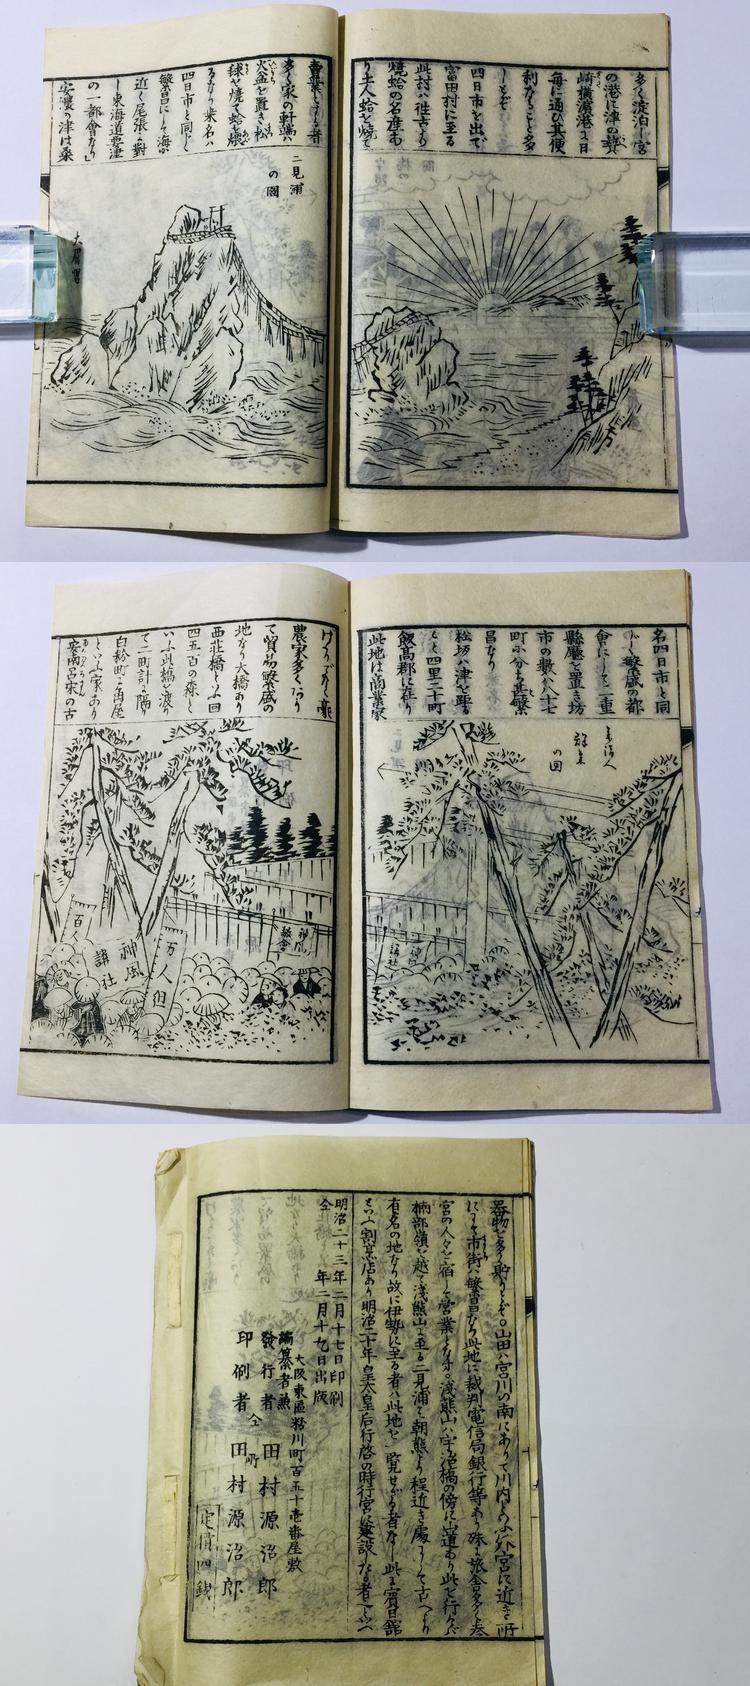 多く淀泊し宮
の港に津の贄
崎横濱港へ日
毎に通ひ其便
利なること多
しとぞ
四日市を出で
富田村に至る
此村ハ往古より
焼蛤の名産あ
り土人蛤を焼て
賣業とする者
多く家の軒端ハ
火盆を置き松
毬を焼て蛤を燻
るなり桒名ハ
四日市と同じ
繁昌にして海か
近く尾張に對
し東海道要津
の一都會なり
安濃の津は桑
二見浦
の圖
名四日市と同
じく繁盛の都
會にして三重
縣廳を置き坊
市の數ハ八十七
町に分ち甚繁
昌なり
松坂ハ津を距る
こと四里二十町
飯高郡に在り
此地は商業家
農家多くありて
て貿易繁盛の
地なり大橋あり
西韮橋とよふ回
四五百の緑し
いふ此橋を渡り
て二町計を隔り
白粉町に角屋
といふ家あり
安南呂宋の古
の図
百人
講社
神風
万人組
器物を多く貯りとぞ○山田ハ宮川の南にありて川内とよふ外宮に近き所
にして市街ハ繁昌なり此地に裁判電信局銀行等あり殊に旅舎多く参
宮の人々を宿して営業となす○淺熊山ハ宇治橋の傍に山道あり此を行くバ
楠部嶺を越て淺熊山に至る二見浦ハ朝熊より程近き處にして古へより
有名の地なり故に伊勢に至る者ハ此地を一覧せざる者なし此に賓日舘
といふ割烹店あり明治二十年皇太皇后行啓の時行宮に建設したる者といふ
明治二十三年二月十七日印刷
仝 年二月十九日出版
大阪東區粉川町百五十壱番屋敷
編纂者兼
發行者 田村源治郎
印刷者 田村源治郎
定價四銭